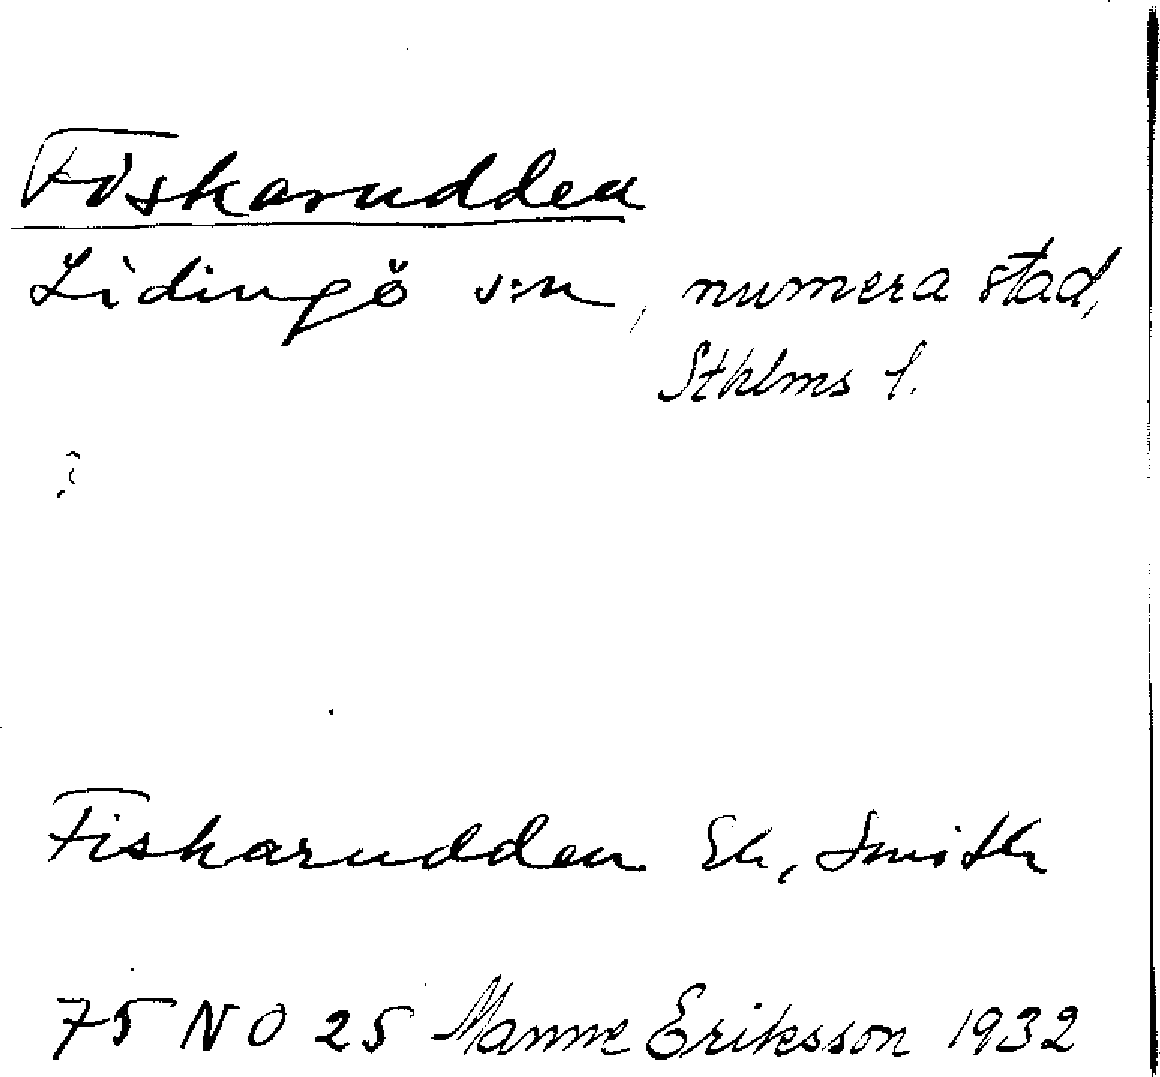 Fiskarudden
Lidingö s:n, numera stad,
Sthlms l.
Fiskarudden Ek, Smith
75 NO 25 Manne Eriksson 1932